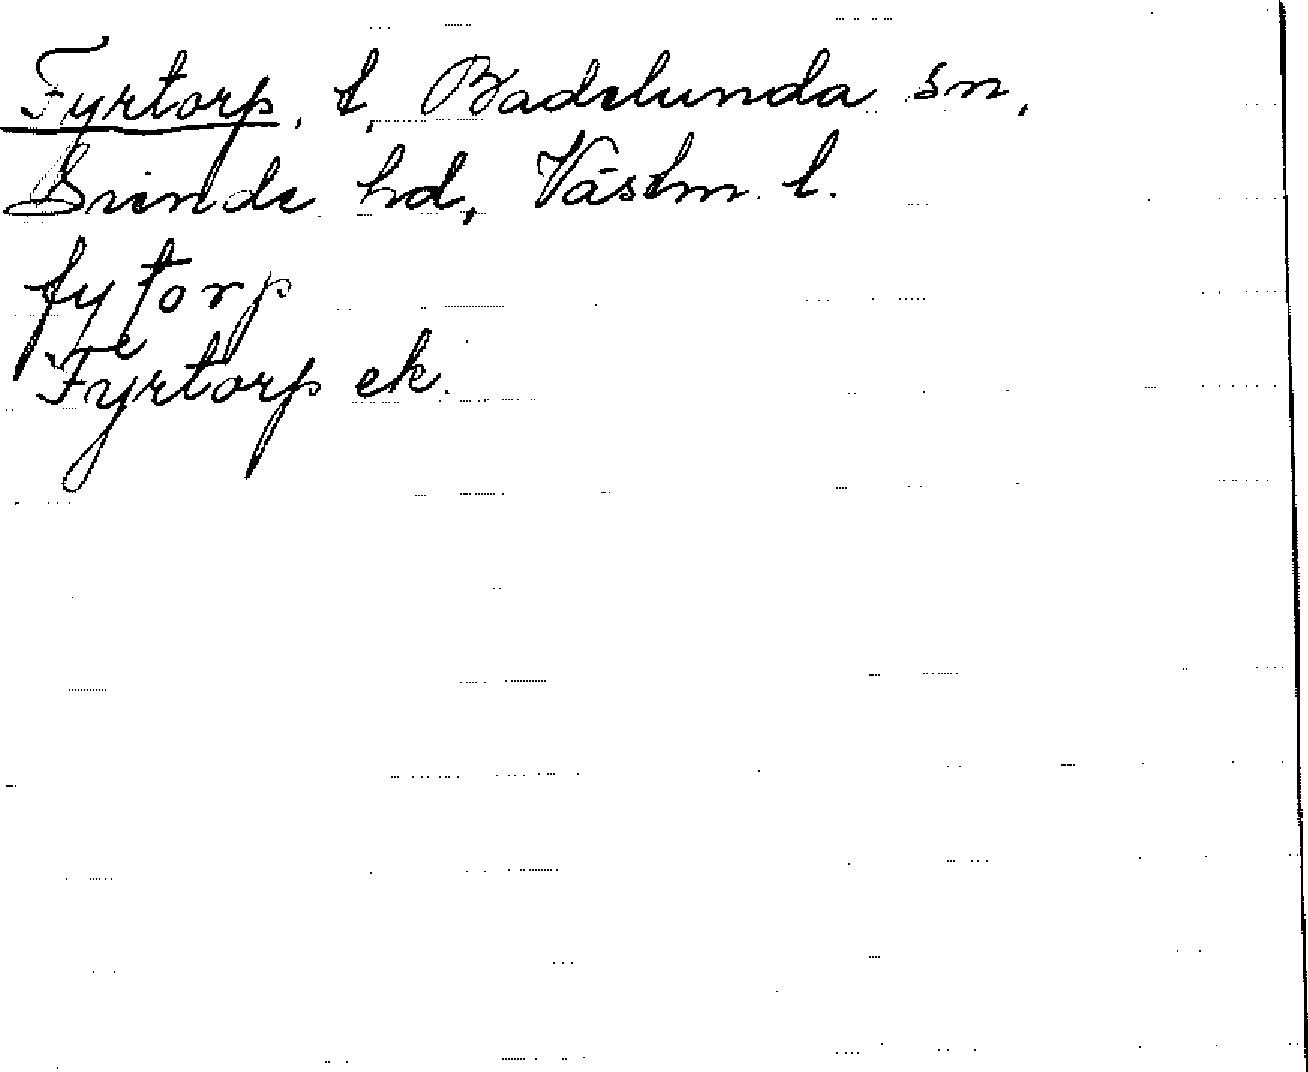 Fyrtorp, t, Badelunda sn,
Siende hd, Västm. l.
fytorp
Fyrtorp ek.